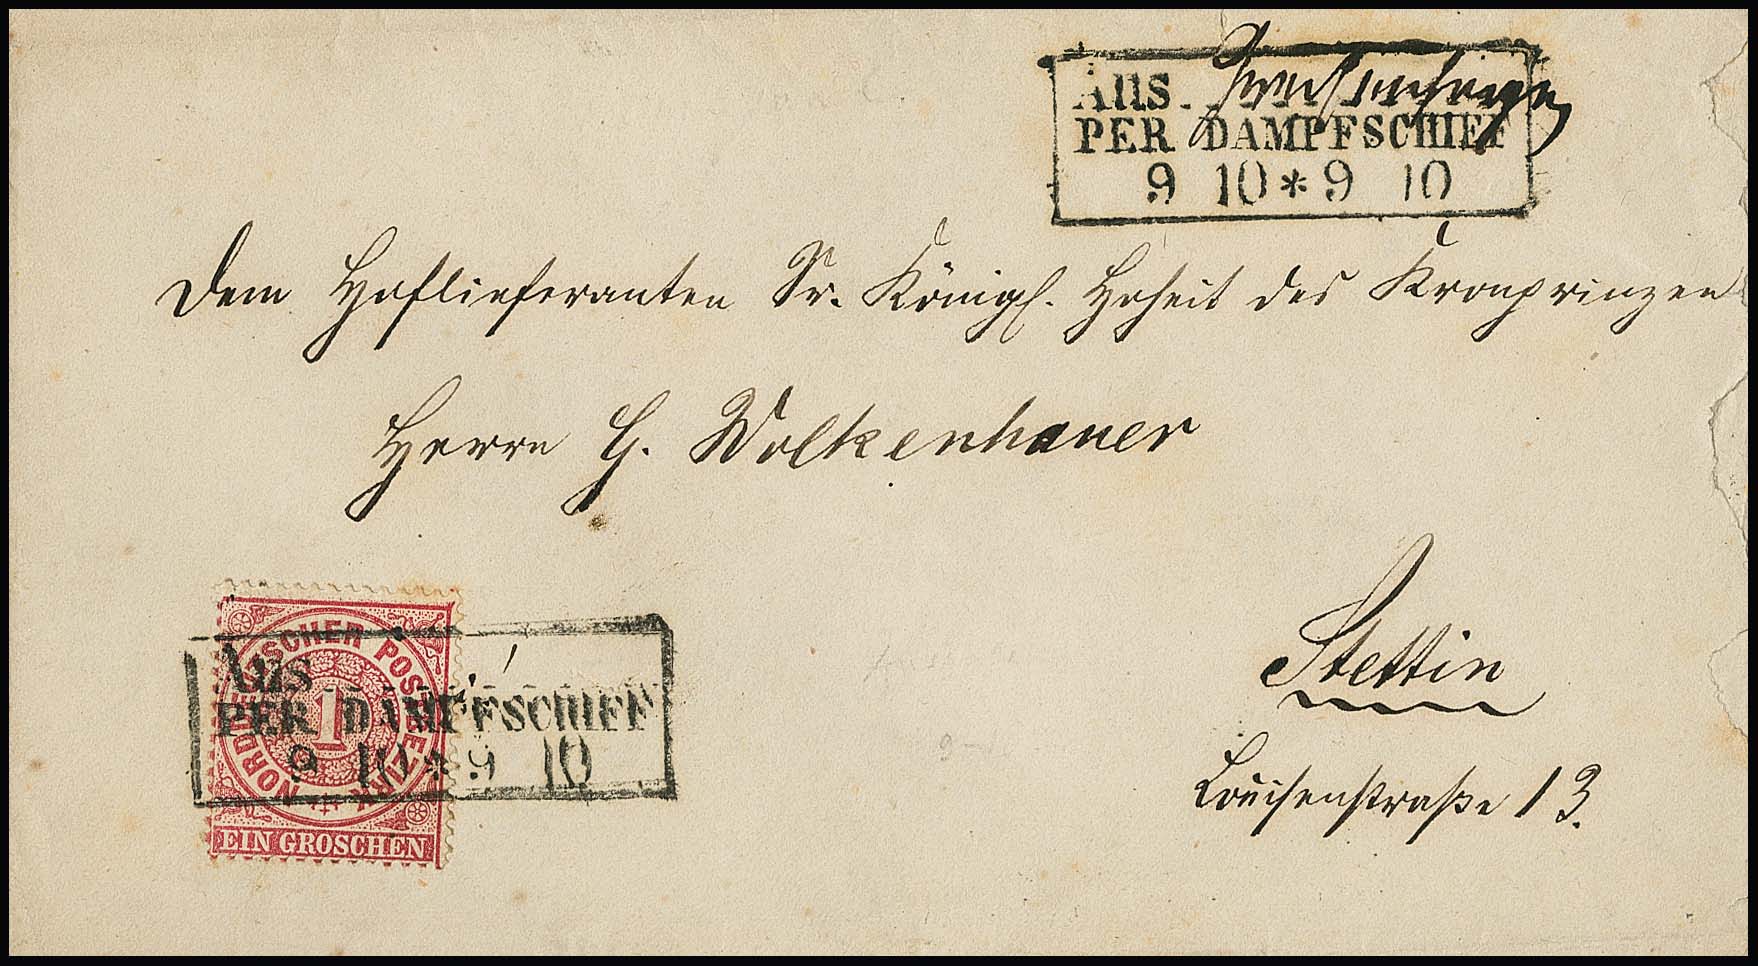 Aus
PER DAMPFSCHIFF
9 10 * 9 10
Dem Hoflieferanten Sr. Königl. Hoheit des Kronprinzen
Herrn G. Wolkenhauer
Stettin
Louisenstraße 13.
NORDDEUTSCHER POSTBEZIRK
1
EIN GROSCHEN
Aus
PER DAMPFSCHIFF
9 10 * 9 10